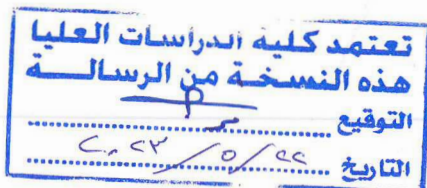 تعتمد كلية الدراسات العليا
هذه النسخة من الرسالـــة
التوقيع
التاريخ ٢٠٢٣/٥/٢٢